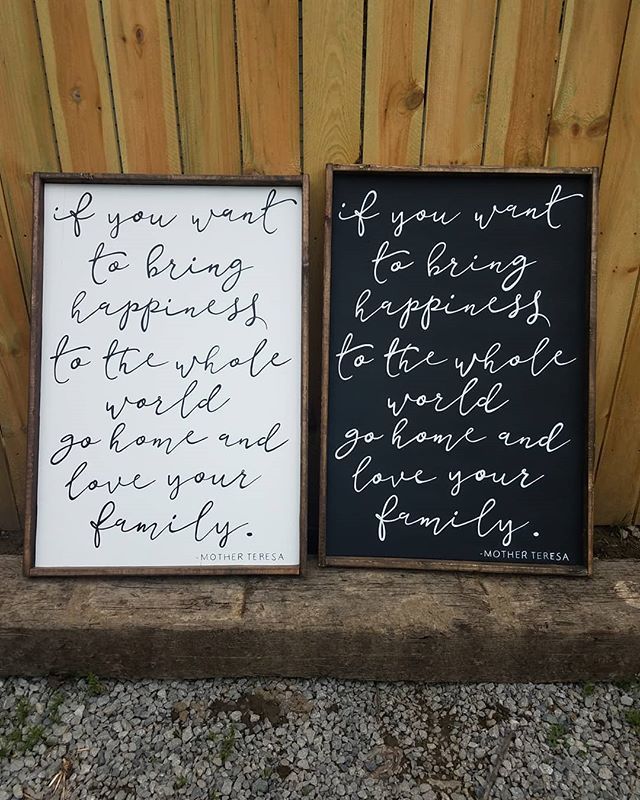 if you want
to bring
happiness
to the whole
world
go home and
love your
family.
-MOTHER TERESA
if you want
to bring
happiness
to the whole
world
go home and
love your
family.
-MOTHER TERESA